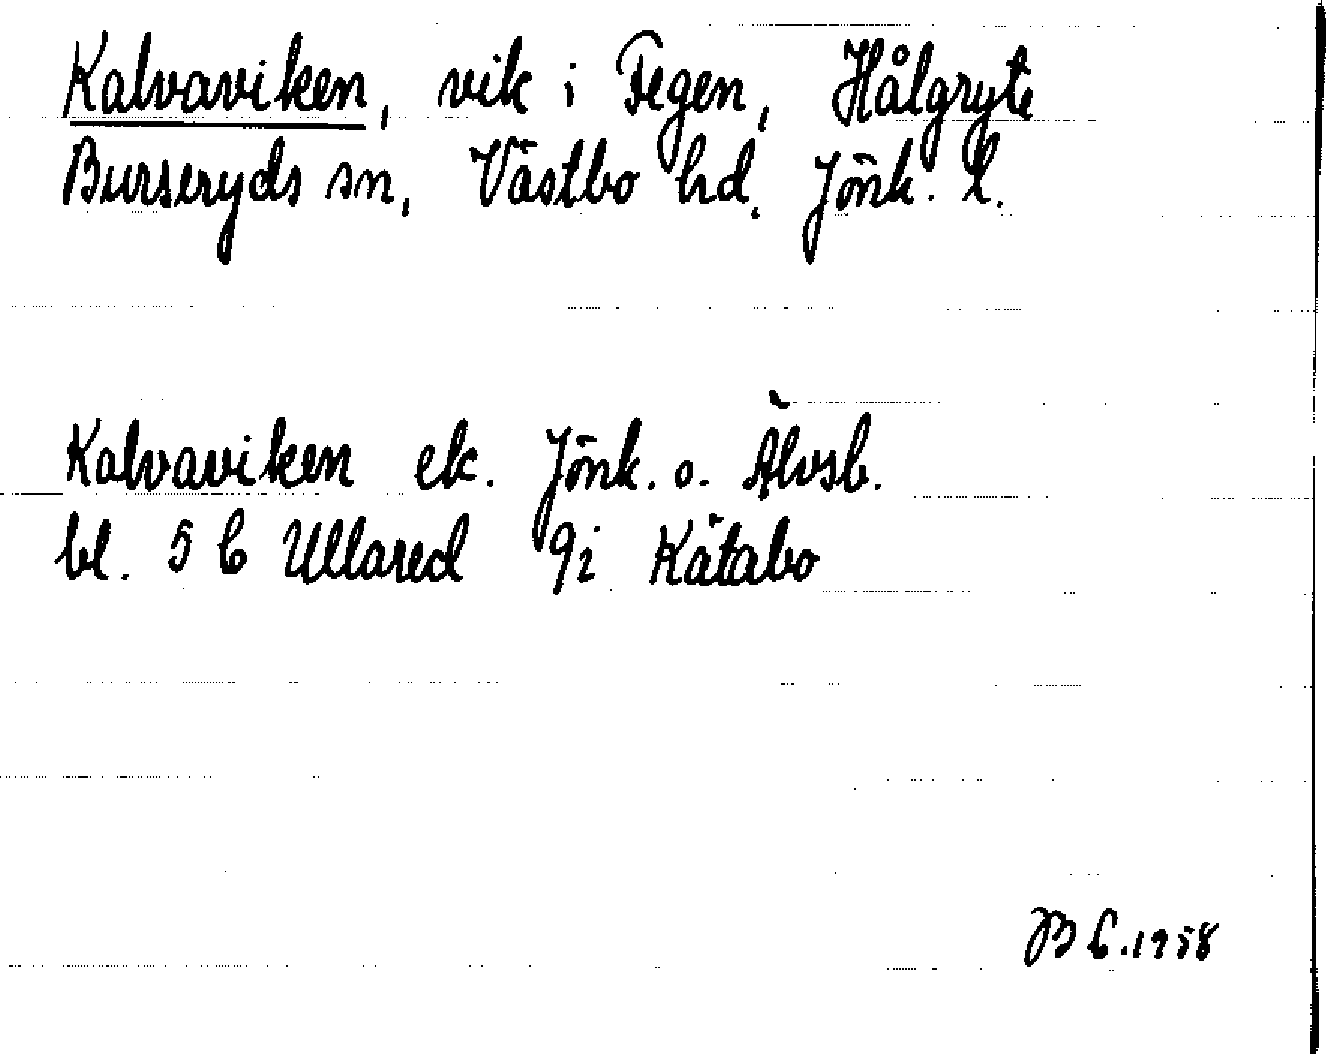 Kalvaviken, vik i Fegen, Hålgryte
Burseryds sn, Västbo hd. Jönk. l.
Kalvaviken ek. Jönk. o. Älvsb.
bl. 5 C Ullared 9i Kätabo
B C. 1958